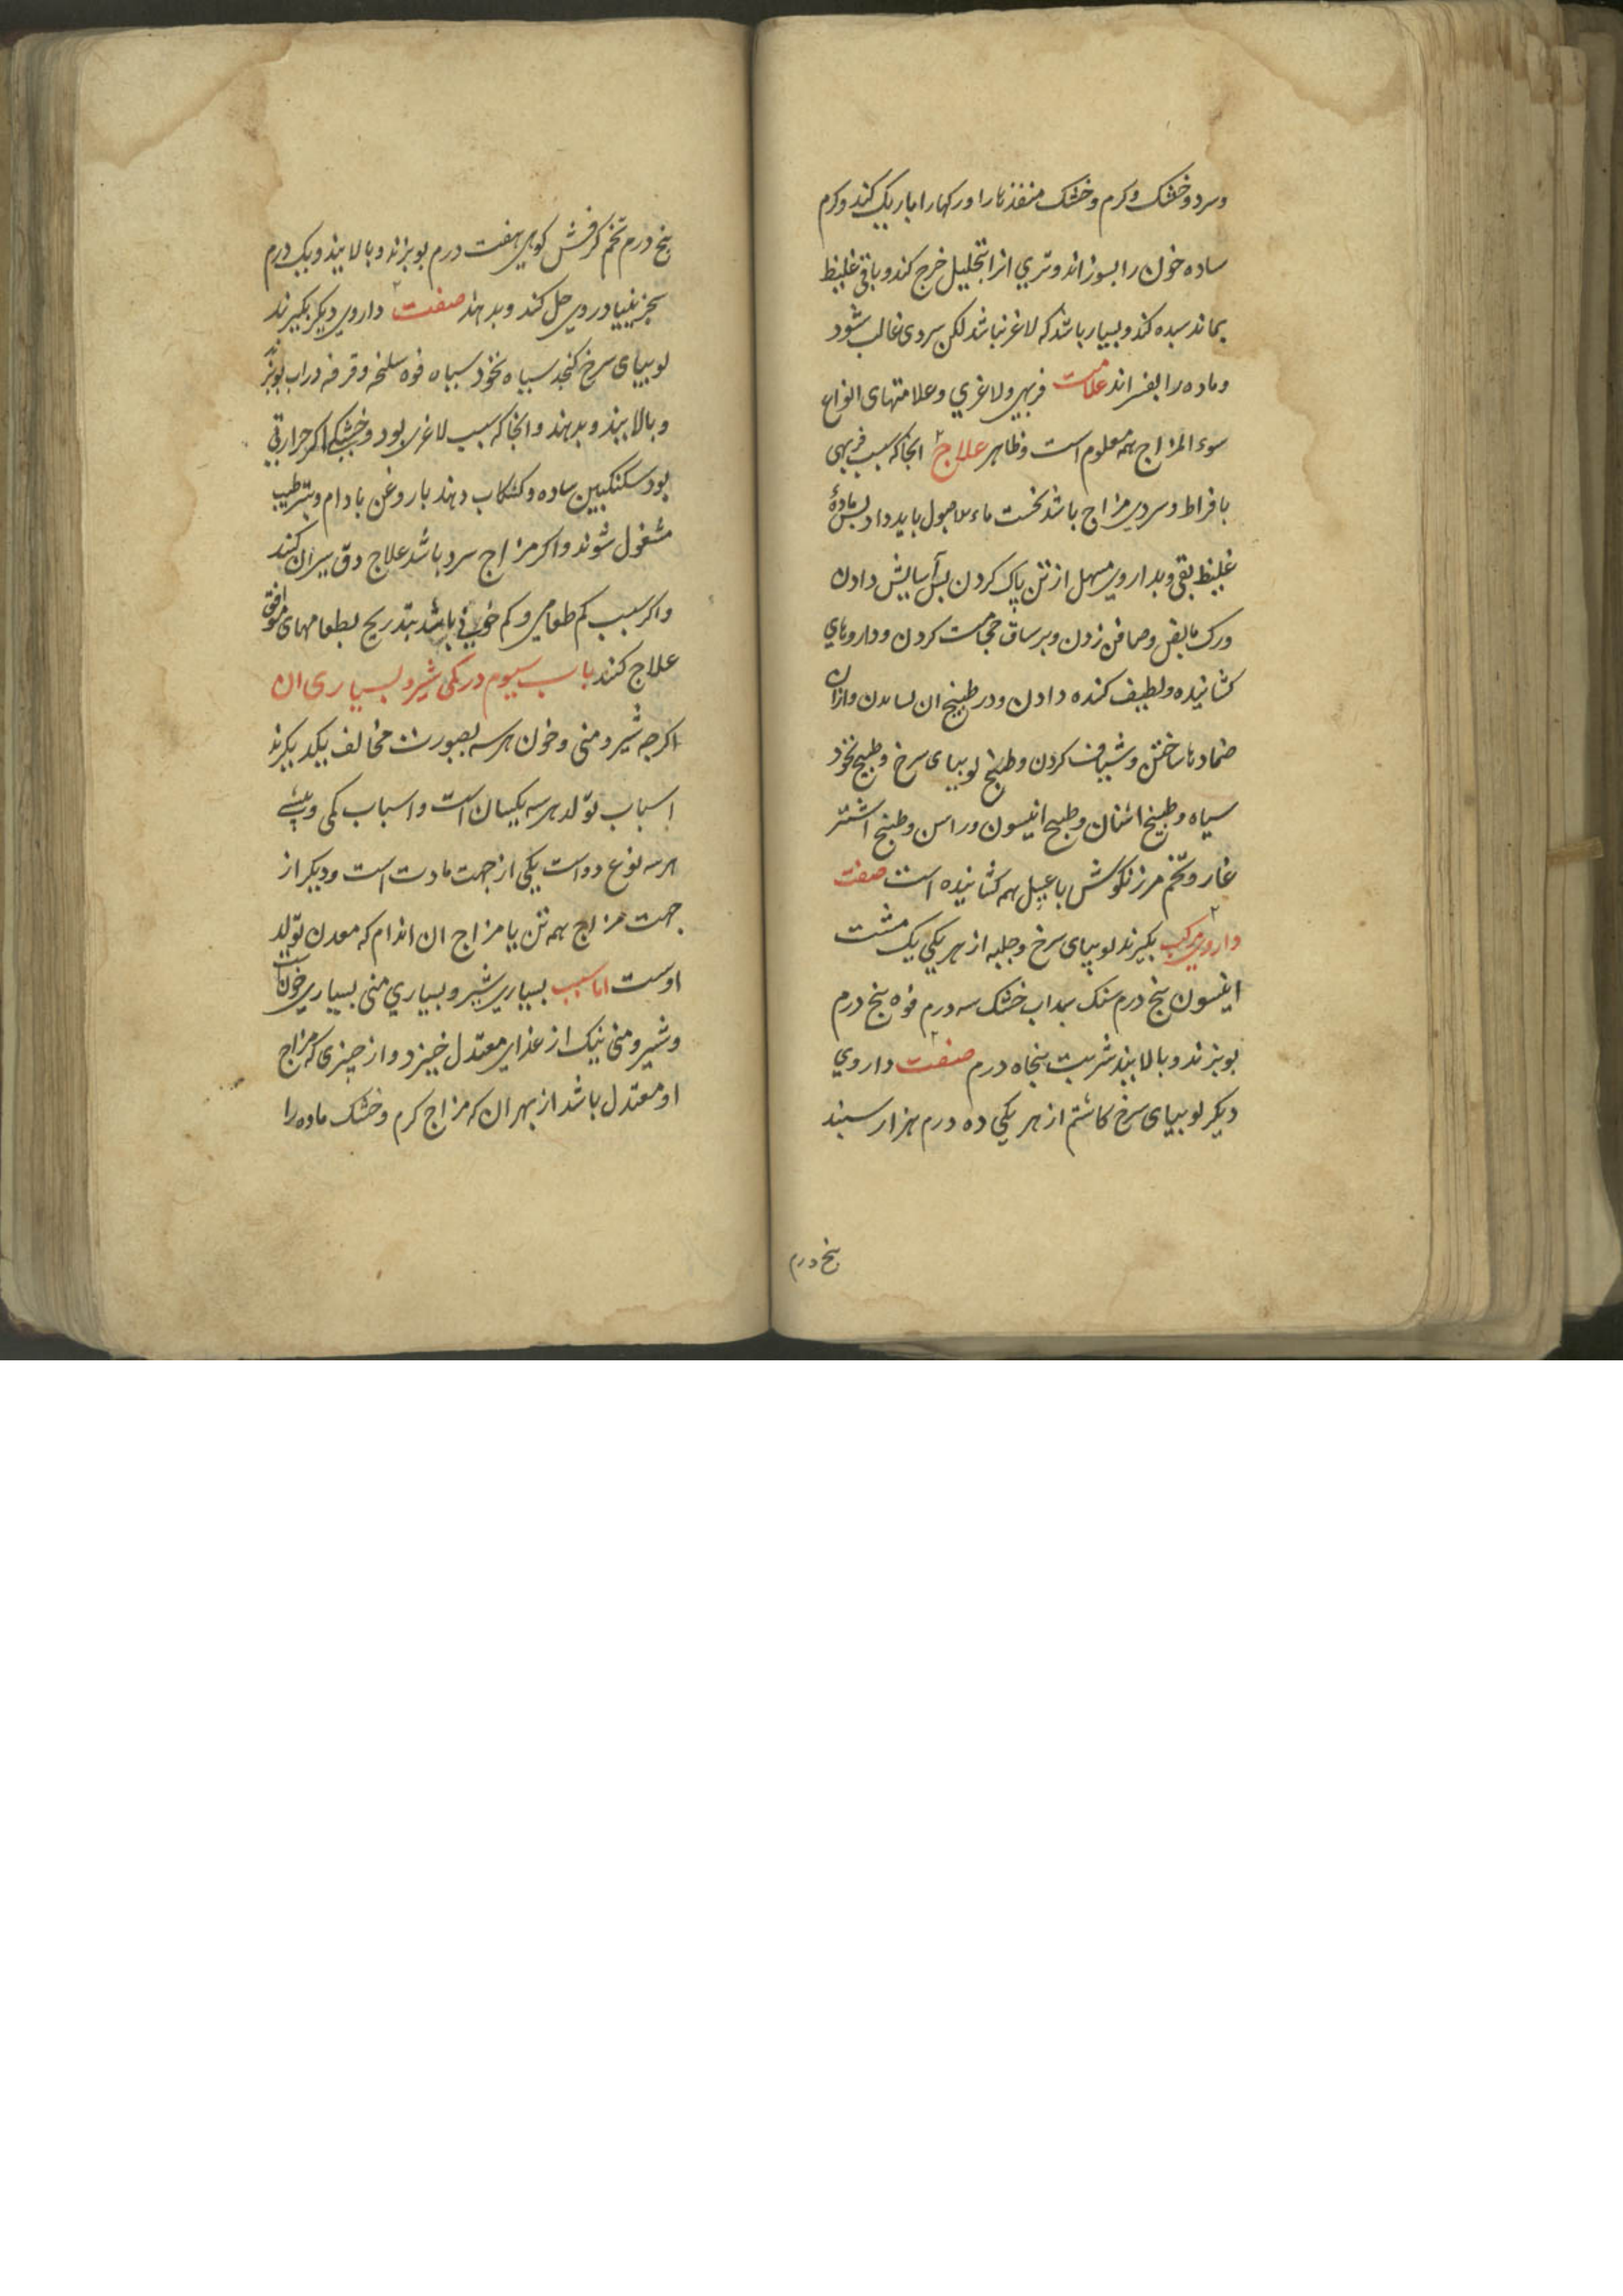 وسرد وخشک وکرم وخشک منفذها را ورکها را باریک کند وکرم
ساده خون را بسوزاند وتری انرا بتحلیل خرج کند وباقی غلیظ
بماند سده کند وبسیار باشد که لاغر نباشد لکن سردی غالب شود
وماده را بفسراند علامت فربهی ولاغری وعلامتهای انواع
سوء المزاج همه معلوم است وظاهر علاج انجا که سبب فربهی
بافراط وسردی مزاج باشد نخست ماء الاصول باید داد بس مادهٔ
غلیظ بقی وبداروی مسهل از تن پاک کردن بس آسایش دادن
ورک مابض وصافن زدن وبر ساق حجامت کردن وداروهای
کشاینده ولطیف کننده دادن ودر طبیخ ان وازان
ضمادها ساختن وشیاف کردن وطبیخ لوبیای سرخ وطبیخ نخود
سیاه وطبیخ اشنان وطبیخ انیسون وراسن وطبیخ اشتر
غار وتخم مرزنکوش با عسل همه کشاینده است صفت
داروی مرکب بکیرند لوبیای سرخ وحلبه از هر یکی یک مشت
انیسون بنج درم سنک سداب خشک سه درم فوه بنج درم
بوبزند وبالایند شربت بنجاه درم صفت داروی
دیکر لوبیای سرخ کاشم از هر یکی ده درم هزار سبند
بنج درم
بنج درم تخم کرفش کوهی هفت درم بوبزند وبالایند ویک درم
سجزینیا در وی حل کند وبدهند صفت داروی دیکر بکیرند
لوبیای سرخ کنجد سیاه نخود سیاه فوه سلیخه وقرفه در اب بوبزند
وبالایند وبدهند وانجا که سبب لاغری بود وخشکی اکر حرارتی
بود سکنکبین ساده وکشکاب دهند با روغن بادام وبترطیب
مشغول شوند واکر مزاج سرد باشد علاج دق بیران کنند
واکر سبب کم طعامی وکم خونی باشد بتدریج بطعامهای موافق
علاج کنند باب سیوم در کمی شیر وبسیاری ان
اکرجه شیر ومنی وخون هر سه بصورت مخالف یکدیکرند
اسباب تولد هر سه یکسان است واسباب کمی وبیشی
هر سه نوع دو است یکی از جهت مادت است ودیکر از
جهت مزاج همه تن یا مزاج ان اندام که معدن تولد
اوست اما سبب بسیاری شیر وبسیاری منی بسیاری خون است
وشیر ومنی نیک از غذای معتدل خیزد واز چیزی که مزاج
او معتدل باشد از بهر ان که مزاج کرم وخشک ماده را